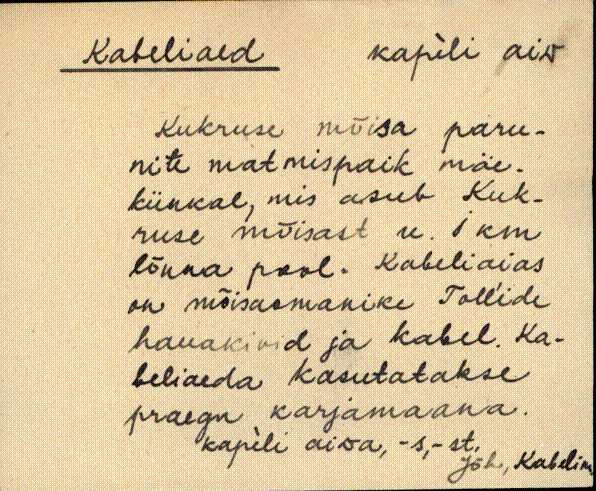 Kabeliaed kapèli aiw
Kukruse mõisa paru-
nite matmispaik mäe-
künkal, mis asub Kuk-
ruse mõisast u. 1 km
lõuna pool. Kabeliaias
on mõisaomanike Toll'ide
hauakivid ja kabel. Ka-
beliaeda kasutatakse
praegu karjamaana.
kapèli aiwa, -s, -st.
Jõh., Kabelim.